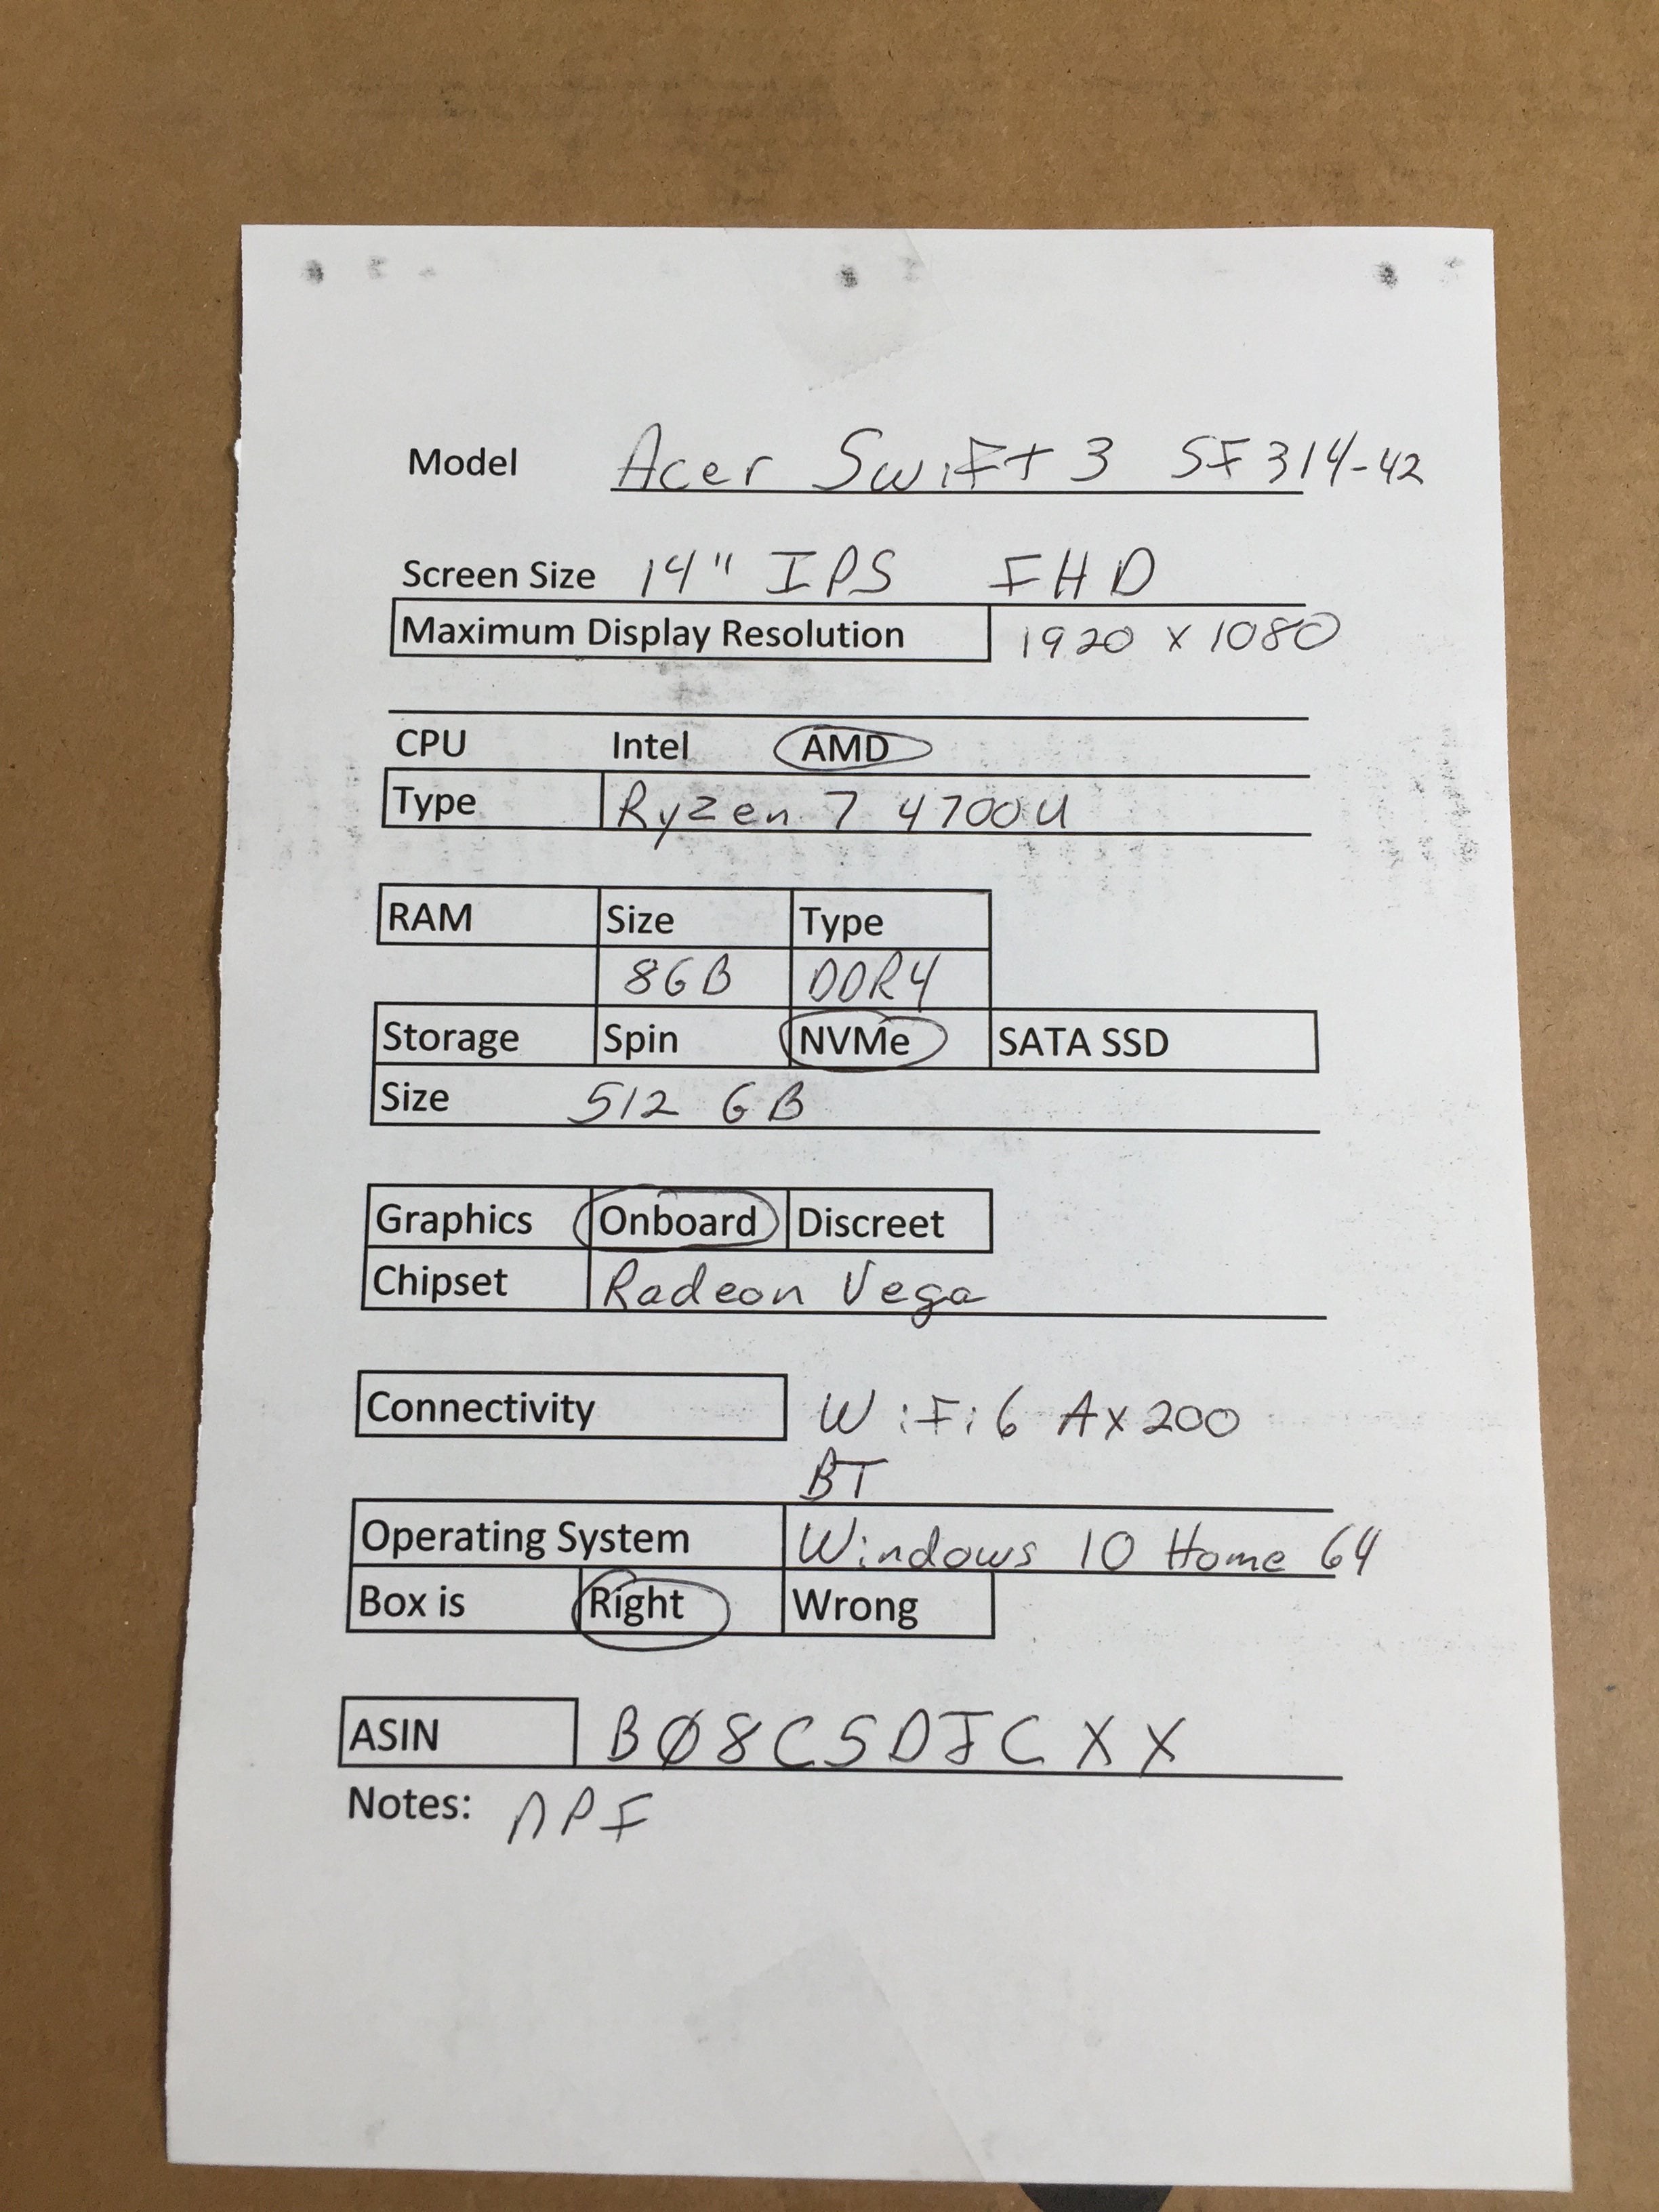 Model Acer Swift 3 SF314-42
Screen Size 14" IPS FHD
Maximum Display Resolution 1920 x 1080
CPU Intel AMD
Type Ryzen 7 4700U
RAM Size Type
8GB DDR4
Storage Spin NVMe SATA SSD
Size 512 GB
Graphics Onboard Discreet
Chipset Radeon Vega
Connectivity WiFi 6 Ax200
BT
Operating System Windows 10 Home 64
Box is Right Wrong
ASIN BØ8CSDJCXX
Notes: NPF